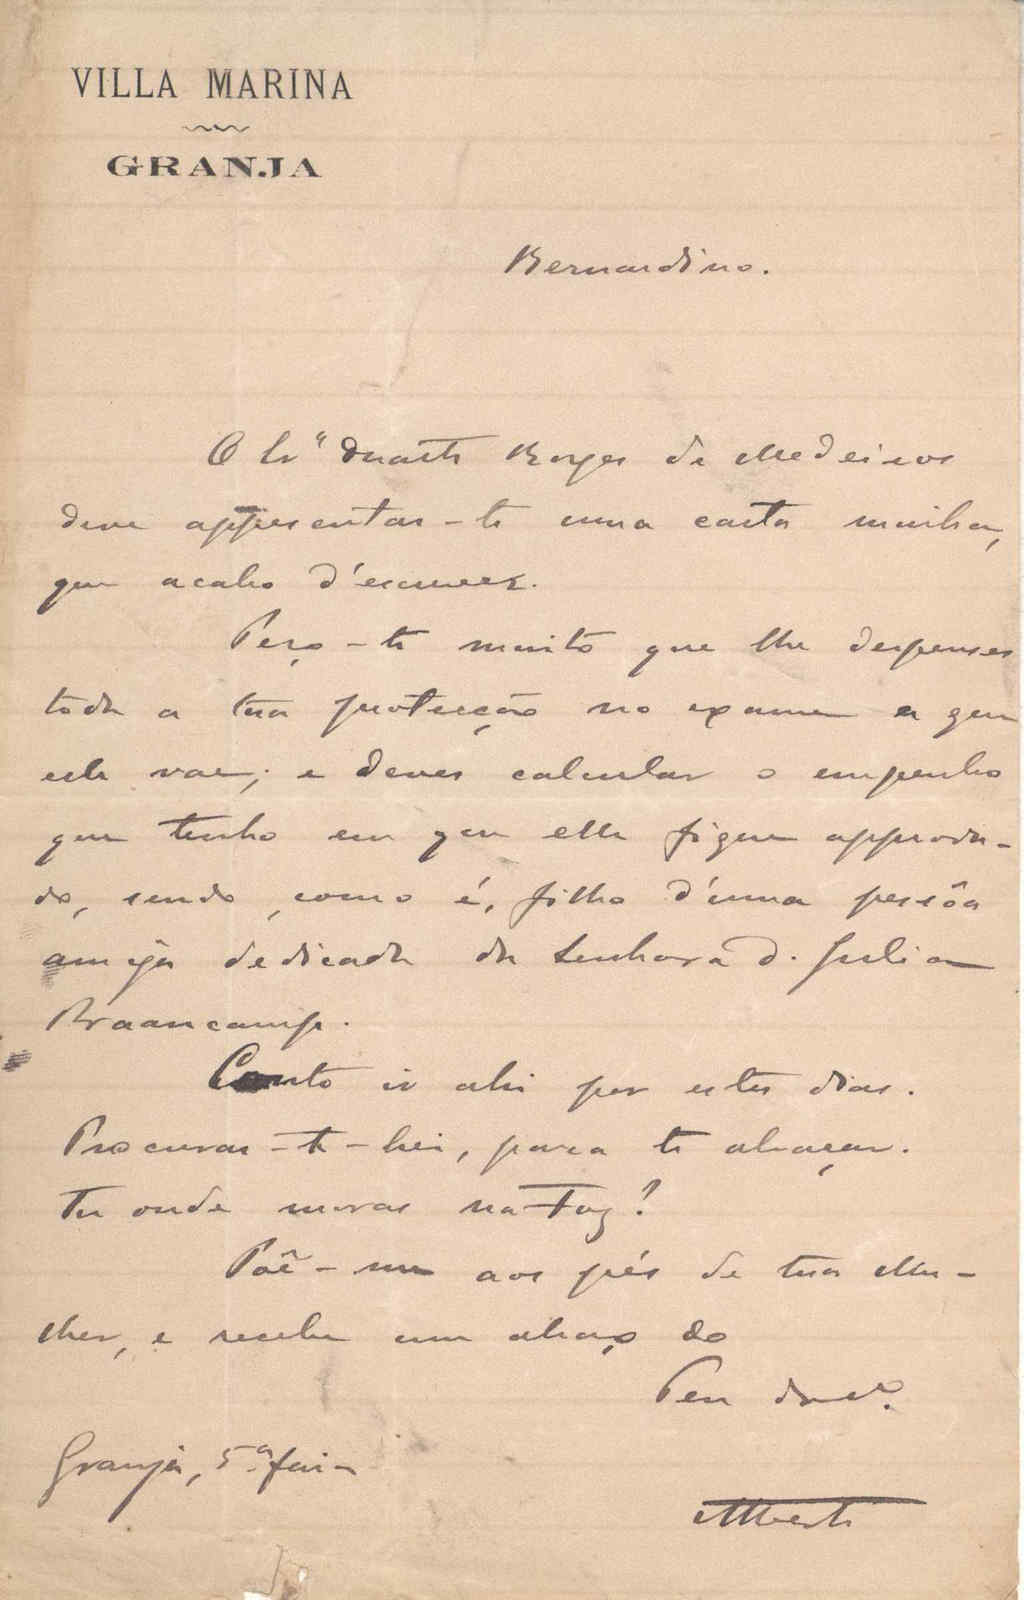 VILLA MARINA
GRANJA
Bernardino.
O Sr. Duarte Borges de Medeiros
deve appresentar-te uma carta minha,
que acabo d'escrever.
Peço-te muito que lhe despenses
toda a tua protecção no exame a que
elle vae; e deves calcular o empenho
que tenho em que elle fique approva-
do, sendo, como é, filho d'uma pessôa
amiga dedicada da Senhora D. Julia
Braancamp.
Conto ir ahi por estes dias.
Procurar-te-hei, para te abraçar.
Tu onde moras na Foz?
Põe-me aos pés de tua Mu-
lher, e recebe um abraço do
Teu
Granja, 5ª feira
Alberto